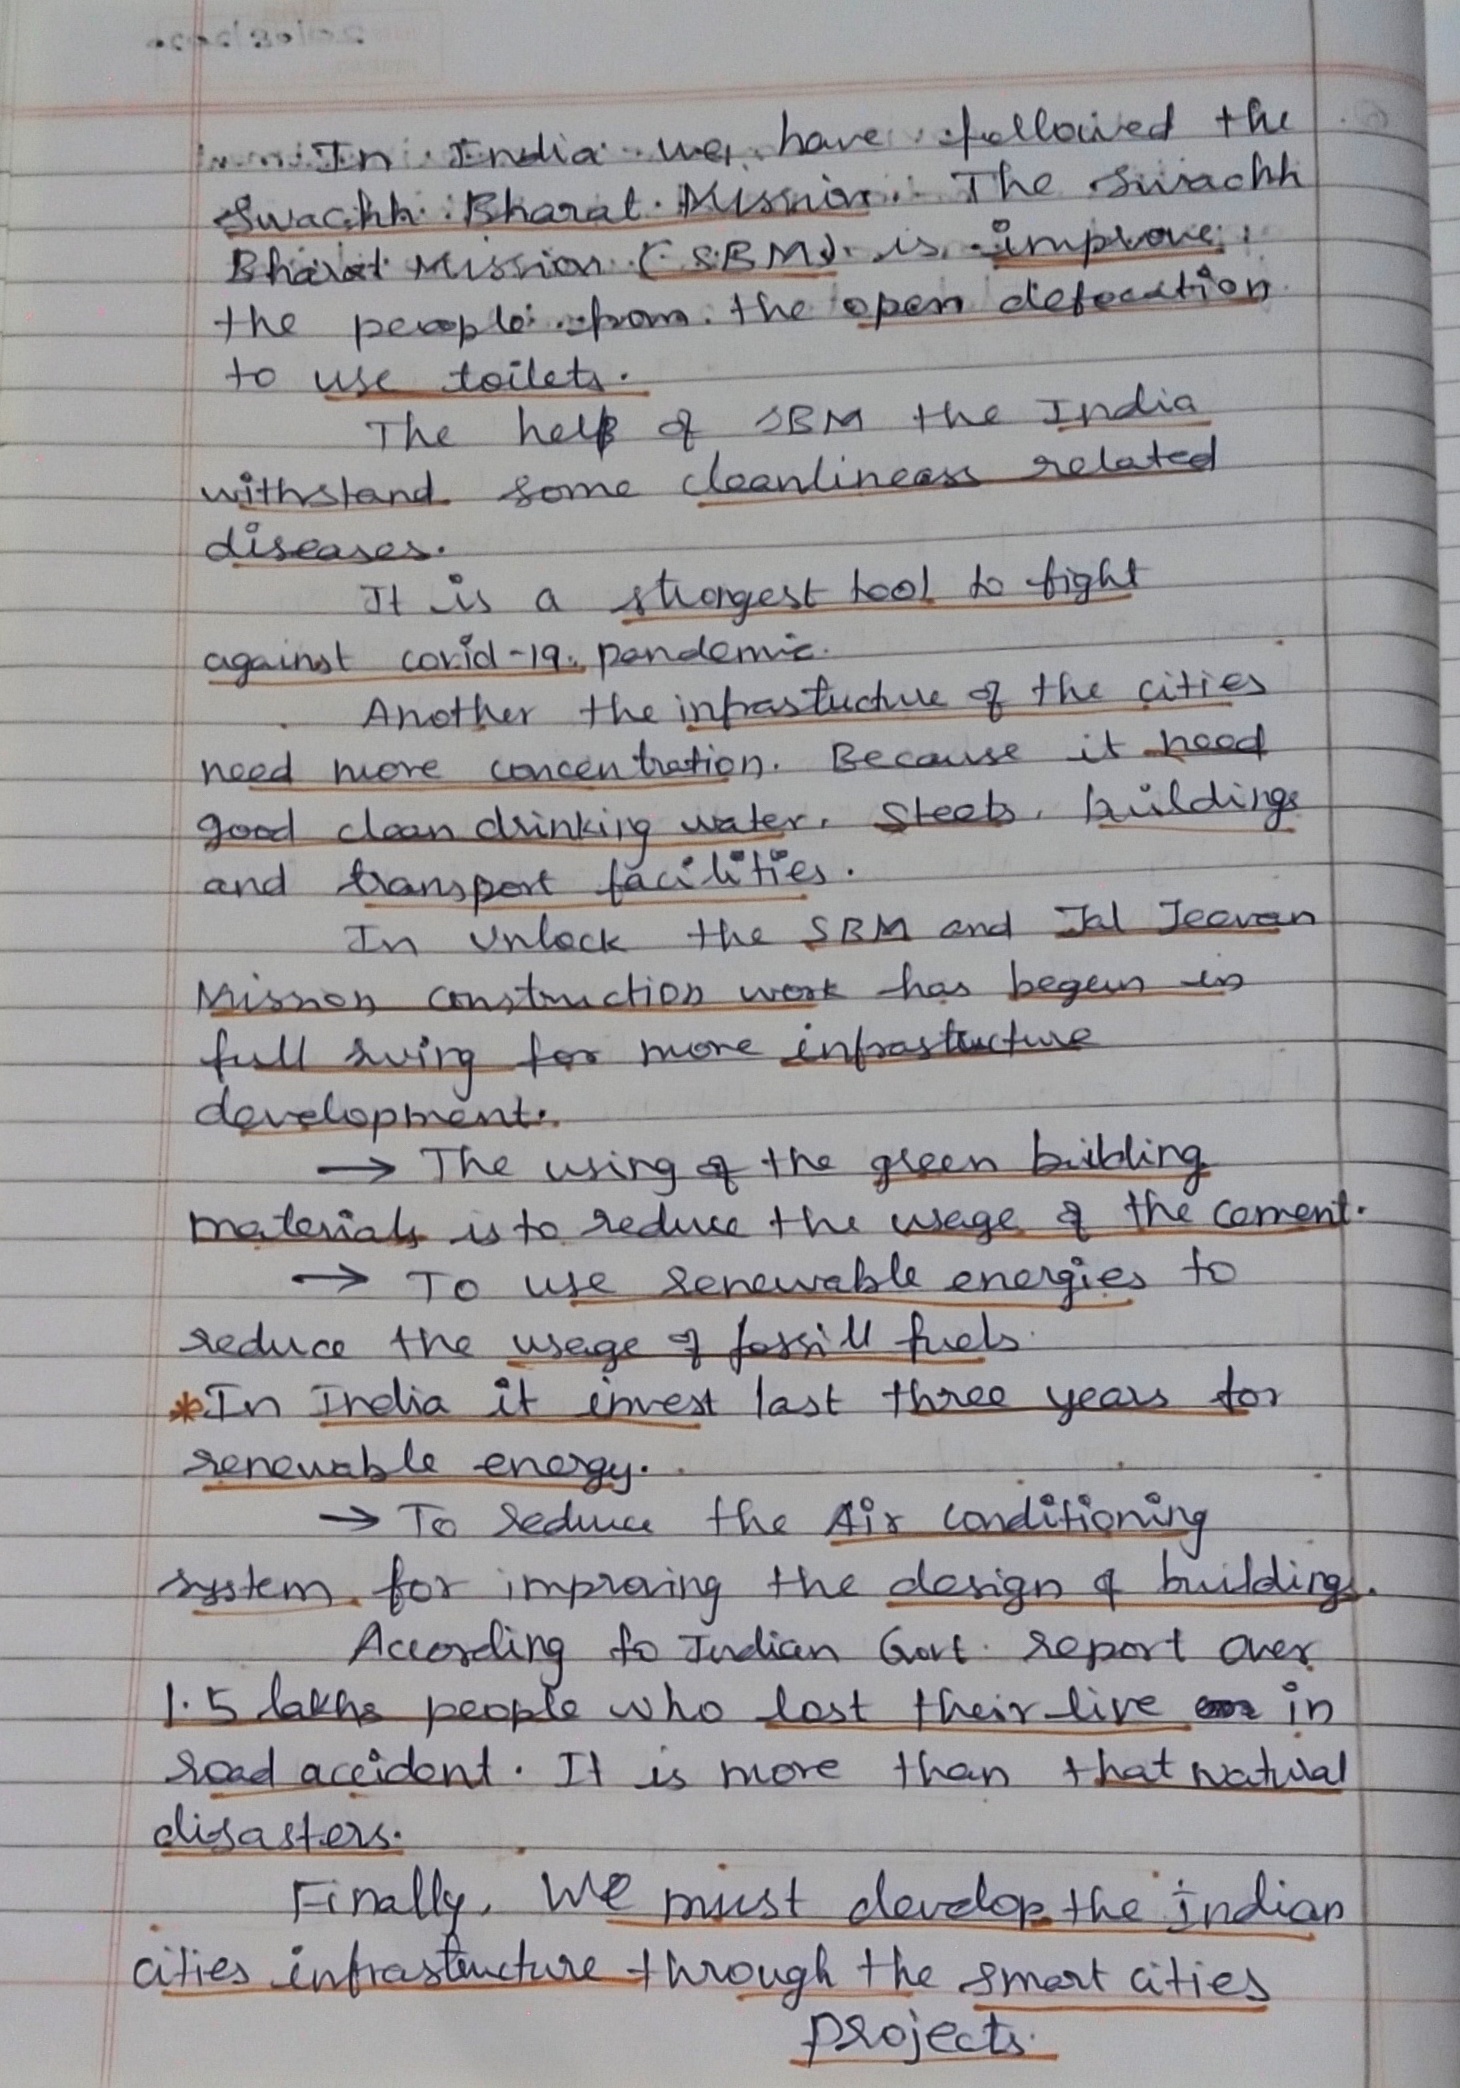 In India we have followed the
Swachh Bharat Mission. The Swachh
Bharat Mission (SBM) is improve
the people from the open defecation
to use toilets.
The help of SBM the India
withstand some cleanlineass related
diseases.
It is a strongest tool to fight
against covid-19, pandemic.
Another the infrastucture of the cities
need more concentration. Because it need
good clean drinking water, steets, buildings
and transport facilities.
In Unlock the SBM and Jal Jeevan
Mission construction work has begun in
full swing for more infrastucture
development.
→ The using of the green buibling
materials is to reduce the usage of the cement.
→ To use renewable energies to
reduce the usage of fossill fuels.
*In India it invest last three years for
renewable energy.
→ To reduce the Air conditioning
system for improving the design of buildings.
According to Indian Govt. report over
1.5 lakhs people who lost their live in
road accident. It is more than that natural
disasters.
Finally, We must develop the indian
cities infrastructure through the smart cities
projects.